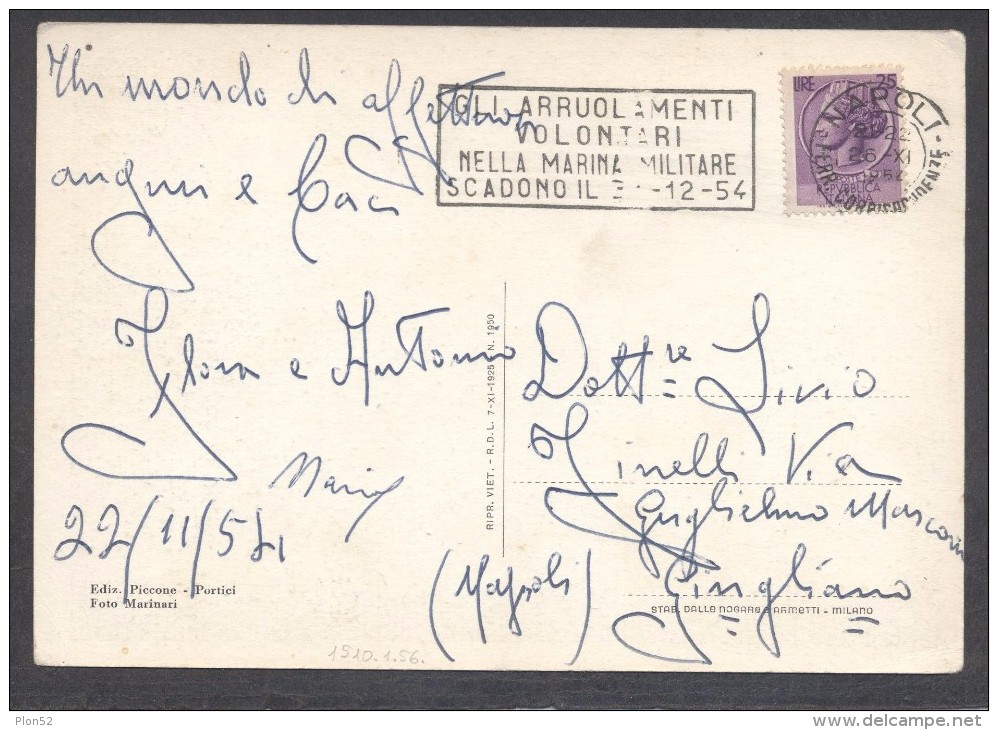 Un mondo di affettuosi
auguri e baci
Flora e Antonio
Maria
22/11/54
Ediz. Piccone - Portici
Foto Marinari
1510.1.56.
GLI ARRUOLAMENTI
VOLONTARI
NELLA MARINA MILITARE
SCADONO IL 31-12-54
LIRE 25
REPVBBLICA
ITALIANA
NAPOLI
21-22
26-XI
FERR. CORRISPONDENZE
RIPR. VIET. - R.D.L. 7-XI-1925 N. 1950
Dott.re Livio
Tinelli Via
Guglielmo Marconi
(Napoli) Giugliano
STAB. DALLE NOGARE E ARMETTI - MILANO
Plon52